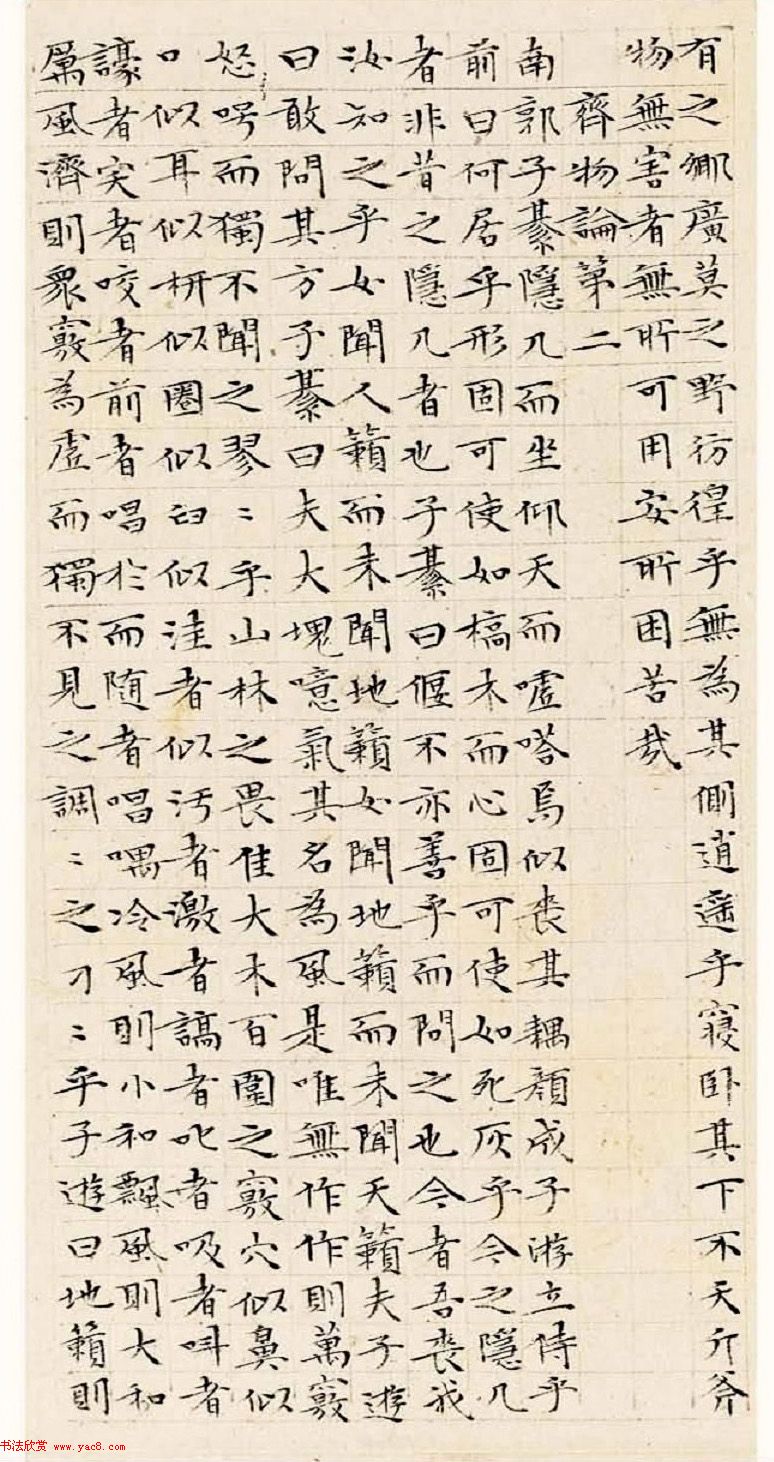 有之鄉廣莫之野彷徨乎無為其側逍遥乎寢卧其下不夭斤斧
物無害者無所可用安所困苦哉
齊物論第二
南郭子綦隱几而坐仰天而噓嗒焉似喪其耦顏成子游立侍乎
前曰何居乎形固可使如槁木而心固可使如死灰乎今之隱几
者非昔之隱几者也子綦曰偃不亦善乎而問之也今者吾喪我
汝知之乎女聞人籟而未聞地籟女聞地籟而未聞天籟夫子遊
曰敢問其方子綦曰夫大塊噫氣其名為風是唯無作作則萬竅
怒呺而獨不聞之翏〻乎山林之畏佳大木百圍之竅穴似鼻似
口似耳似枅似圈似臼似洼者似污者激者謞者叱者吸者叫者
譹者宎者咬者前者唱於而随者唱喁冷風則小和飄風則大和
厲風濟則眾竅為虛而獨不見之調〻之刁〻乎子遊曰地籟則
书法欣赏 www.yac8.com